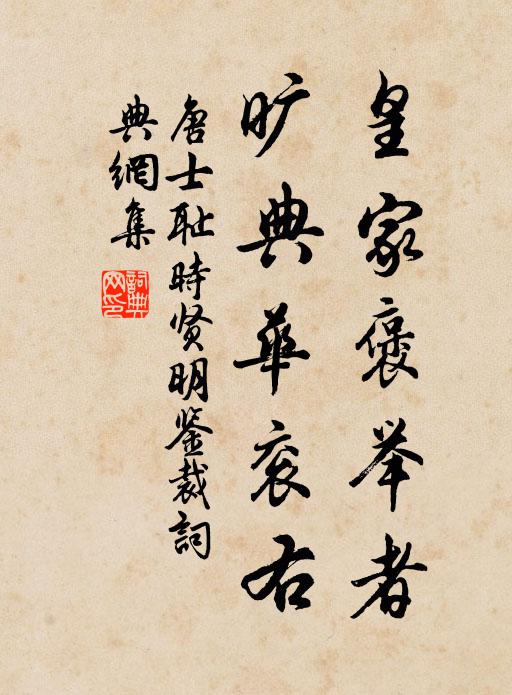 皇家褒举者
旷典华衮右
唐士耻时贤明鉴裁词
典網集
詞典网印